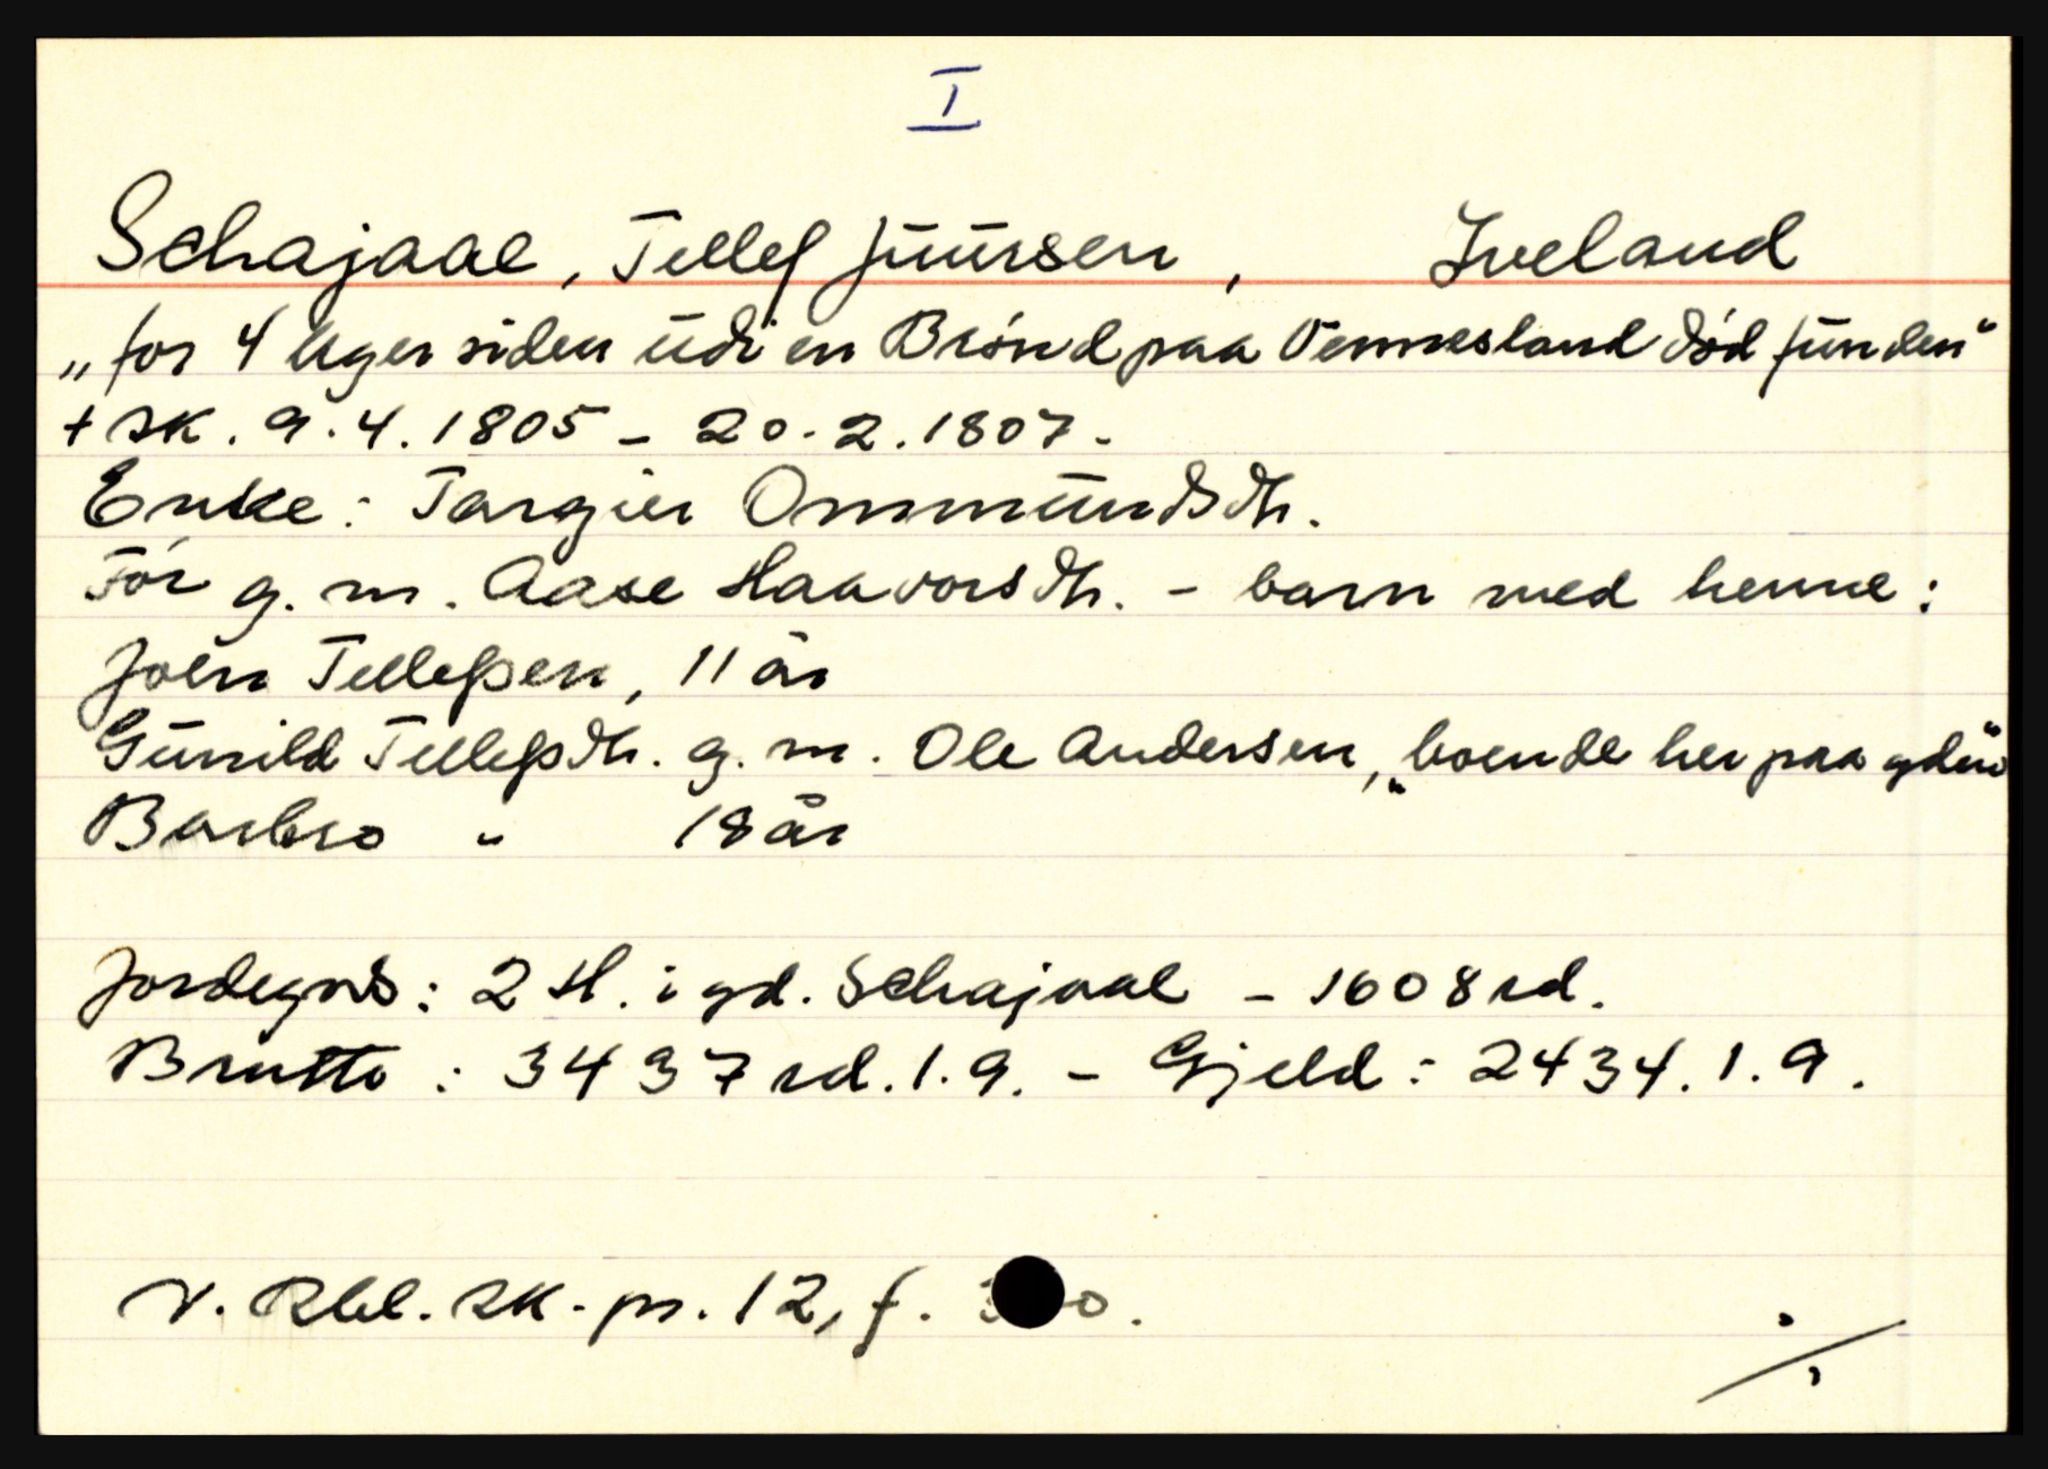 I
Schajaae, Tellef Juursen, Iveland
„for 4 Uger siden udi en Brönd paa Vennesland död funden"
+ sk. 9.4.1805 - 20.2.1807.
Enke: Targier Ommundsdtr.
Før g. m. Aase Haavorsdtr. - barn med henne:
Joen Tellefsen, 11 år
Gunild Tellefsdtr. g. m. Ole Andersen, „boende her paa gden"
Barbro " 18 år
Jordegods: 2 H. i gd. Schajaae - 1608 rd.
Brutto: 3437 rd. 1. 9. - Gjeld: 2434. 1. 9.
V. Rbl. sk. pr. 12, f.
./.